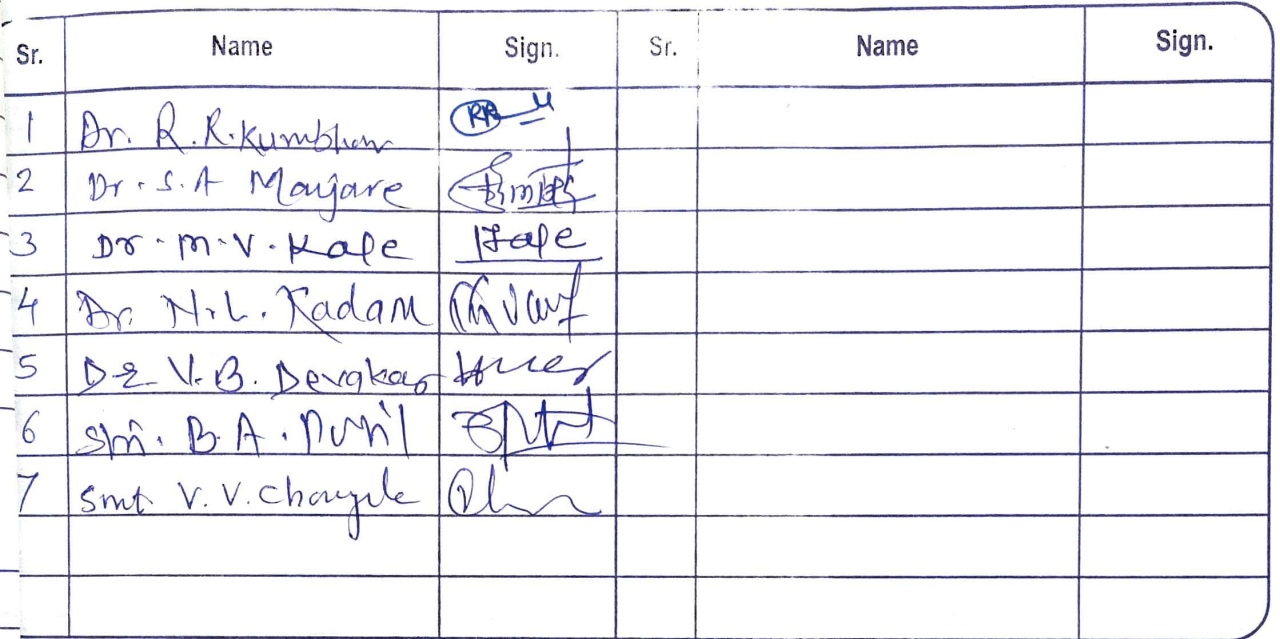 Sr. Name Sign. Sr. Name Sign.
1 Dr. R. R. Kumbhar
2 Dr. S. A Manjare
3 Dr. M. V. Kale
4 Dr. N. L. Kadam
5 Dr V. B. Devakar
6 Shri. B. A. Patil
7 Smt V. V. Chougule